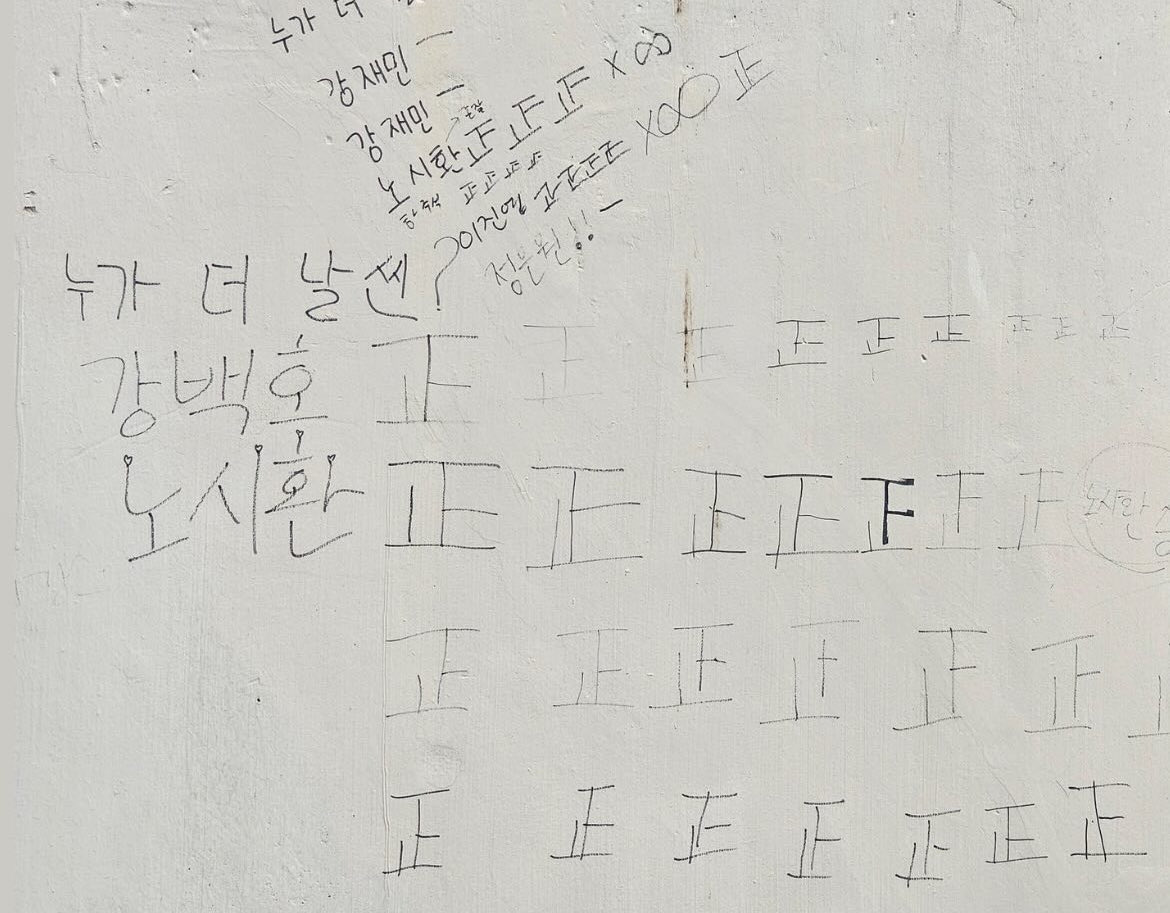 누가 더
강재민 一
강재민 一
노시환 正 正 正 x ∞
正 正 正 正
이진영 正 正 正 正 x ∞ 正
정은원!! 一
누가 더 날쎈?
강백호 正 正 正 正 正 正 正 正 正
노시환 正 正 正 正 正 正 正 노시환
正 正 正 正 正 正
正 正 正 正 正 正 正